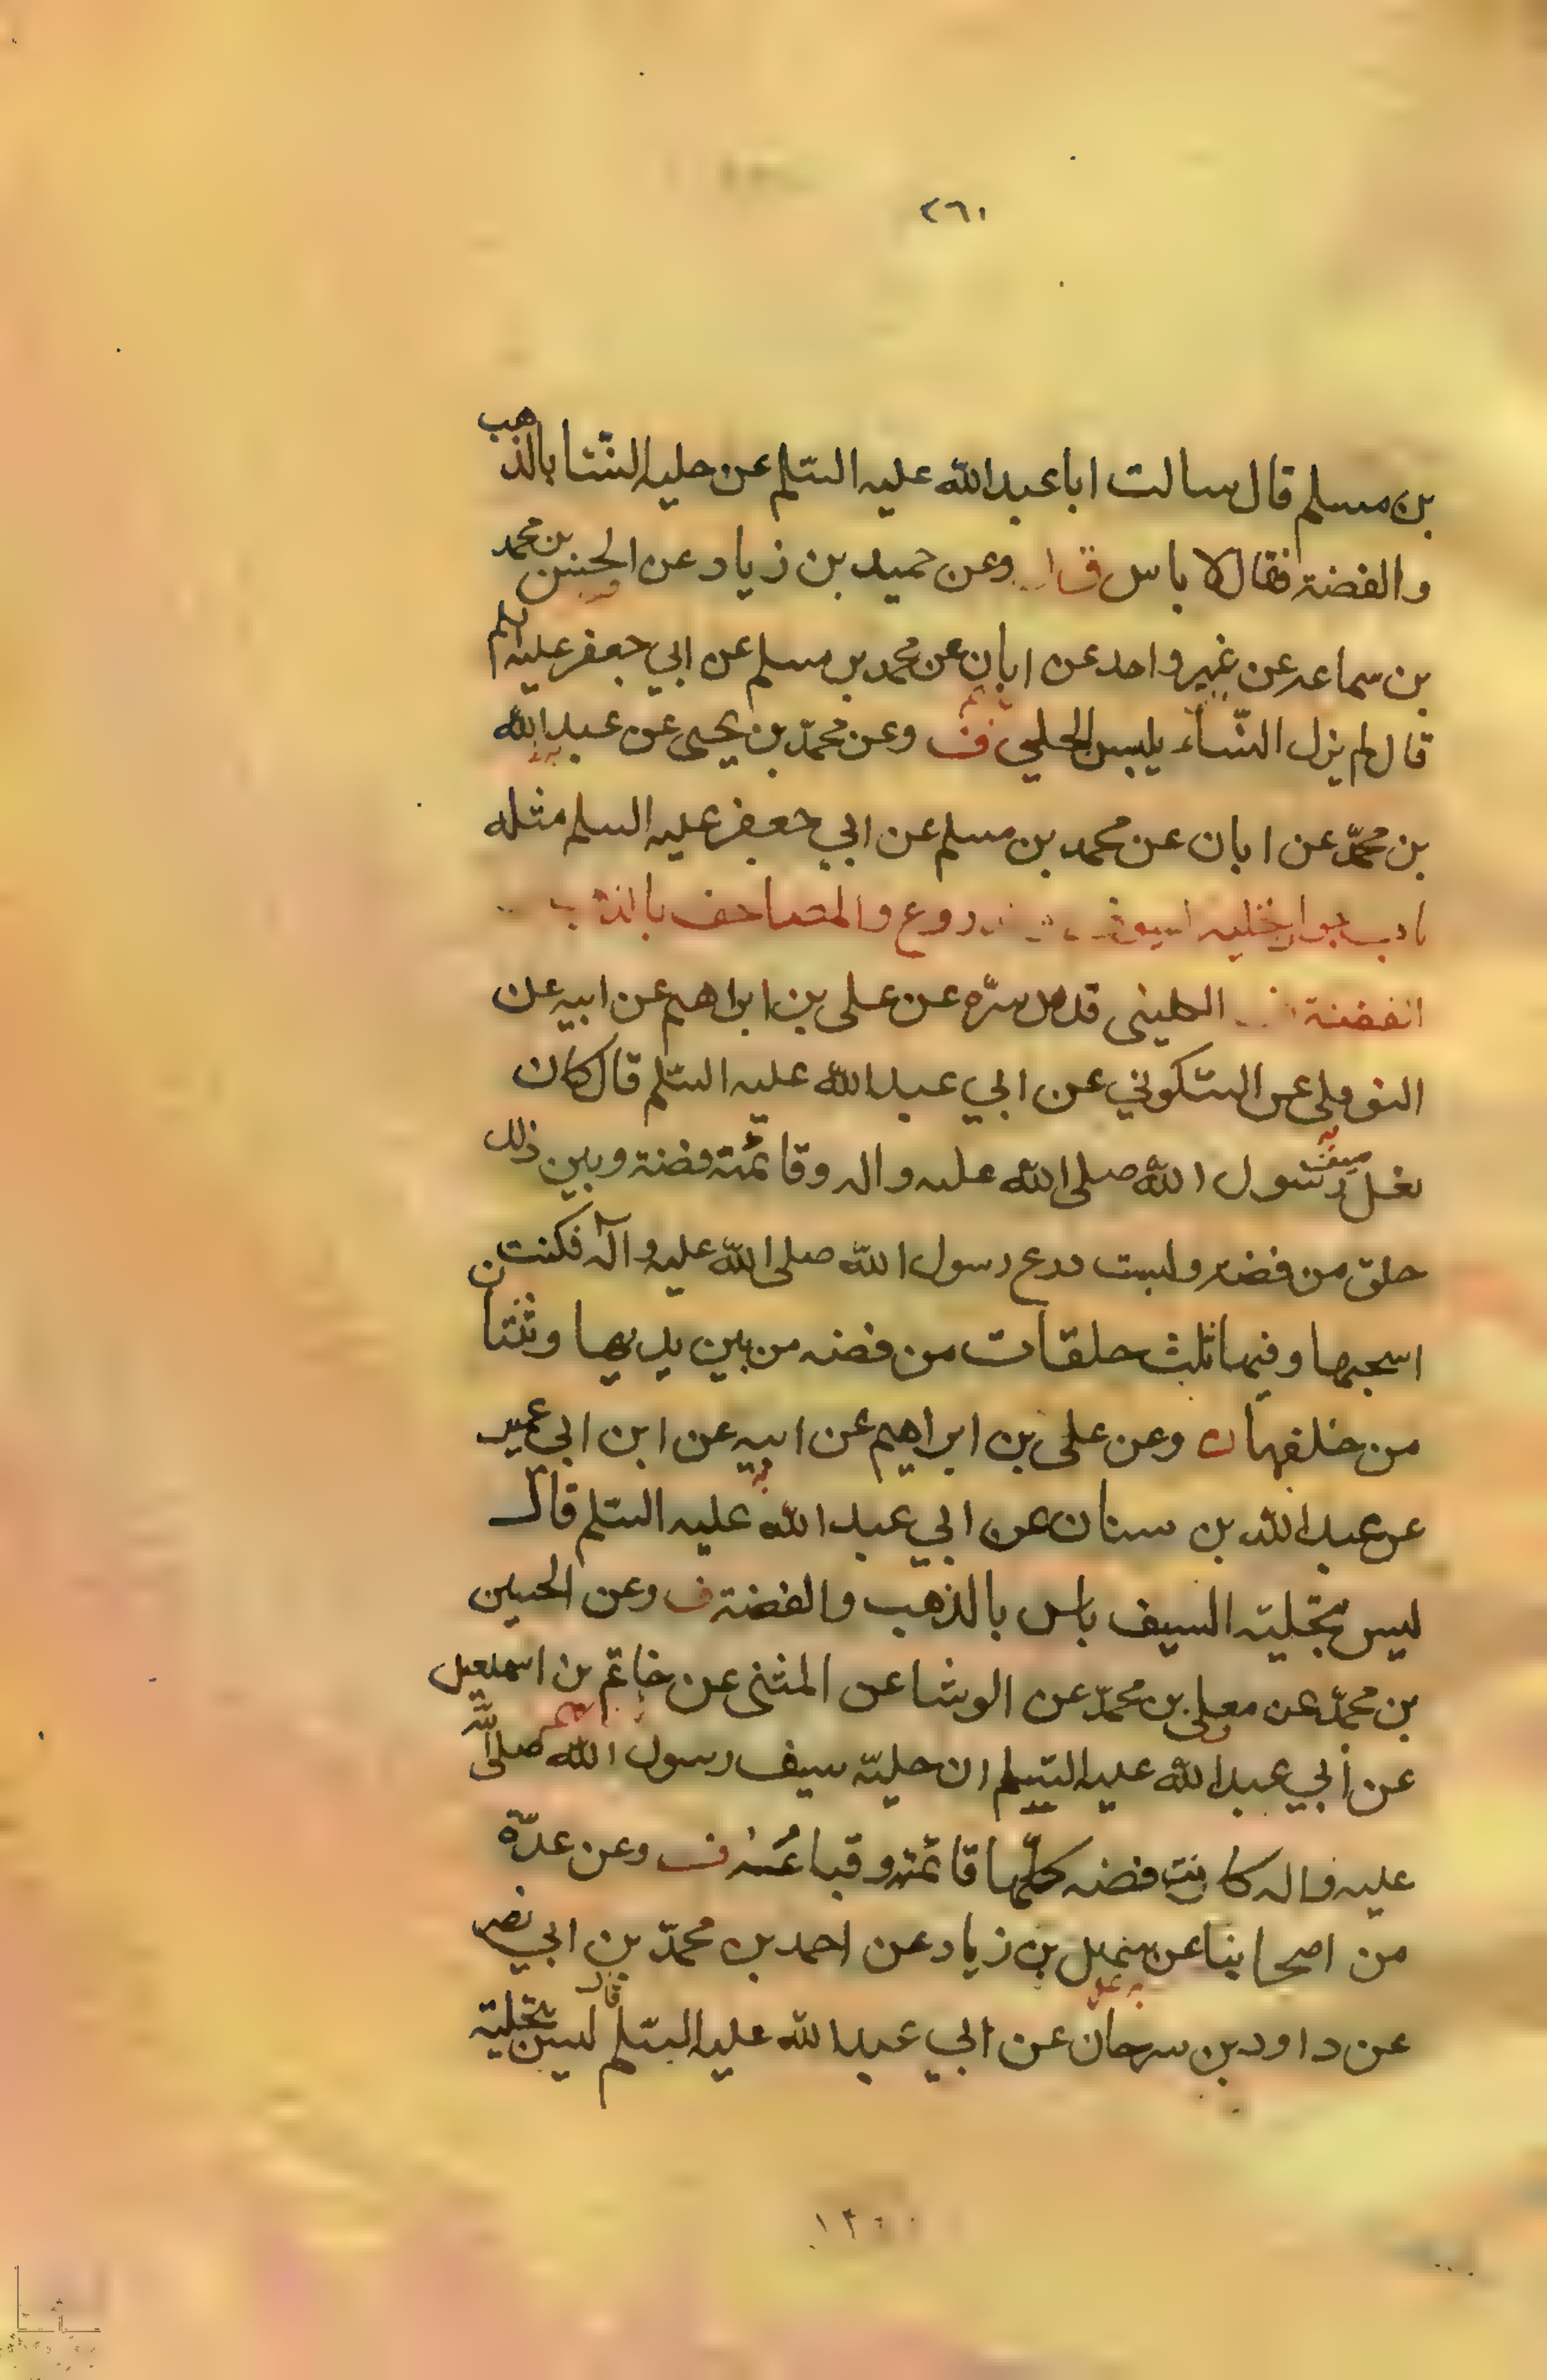 ٢٦١
بن مسلم قال سالت ابا عبد الله عليه السّلم عن حليه النّسا بالذهب
والفضة فقال لا باس وعن حميد بن زياد عن الحسن بن محمد
بن سماعه عن غير واحد عن ابان عن محمد بن مسلم عن ابي جعفر عليه السلم
قال لم يزل النّساء يلبس الحلي ف وعن محمّد بن يحيى عن عبد الله
بن محمّد عن ابان عن محمد بن مسلم عن ابي جعفر عليه السلم مثله
باب جواز تحليه السيوف والدروع والمصاحف بالذهب
الفضة الكليني قدس سرّه عن على بن ابراهيم عن ابيه عن
النوفلى عن السّكوني عن ابي عبد الله عليه السّلم قال كان
نعل سيف رسول الله صلى الله عليه واله وقائمته فضة وبين ذلك
حلق من فضه ولبست درع رسول الله صلى الله عليه وآله فكنت
اسحبها وفيها ثلث حلقات من فضه من بين يديها وثنتان
من خلفها وعن على بن ابراهيم عن ابيه عن ابن ابي عمير
عن عبد الله بن سنان عن ابي عبد الله عليه السّلم قال
ليس بتحلية السيف باس بالذهب والفضة ف وعن الحسين
بن محمّد عن معلى بن محمّد عن الوشا عن المثنى عن حاتم بن اسمعيل
عن أبي عبد الله عليه السّلم ان حليّة سيف رسول الله صلى الله
عليه واله كانت فضه كلّها قائمته وقباعُه ف وعن عدّة
من اصحابنا عن سهل بن زياد عن احمد بن محمّد بن ابي نصر
عن داود بن سرحان عن ابي عبد الله عليه السّلم قال ليس بتحلية